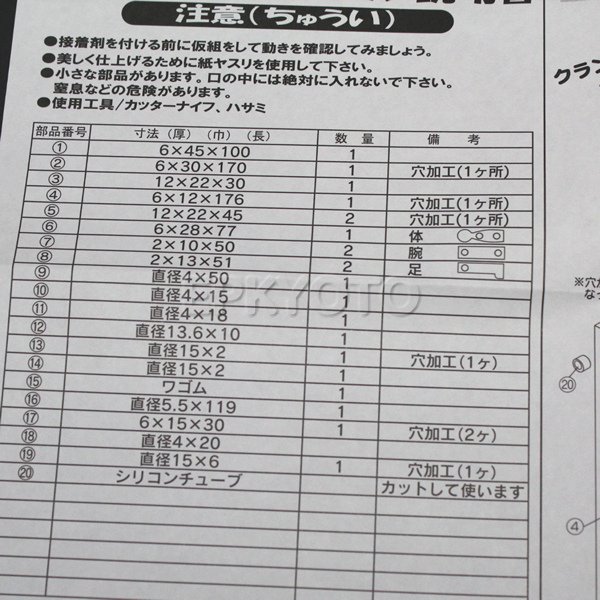 注意(ちゅうい)
●接着剤を付ける前に仮組をして動きを確認してみましょう。
●美しく仕上げるために紙ヤスリを使用して下さい。
●小さな部品があります。口の中には絶対に入れないで下さい。
窒息などの危険があります。
●使用工具/カッターナイフ、ハサミ
部品番号 寸法(厚)(巾)(長) 数量 備考
① 6×45×100 1
② 6×30×170 1 穴加工(1ヶ所)
③ 12×22×30 1
④ 6×12×176 1 穴加工(1ヶ所)
⑤ 12×22×45 2 穴加工(1ヶ所)
⑥ 6×28×77 1 体
⑦ 2×10×50 2 腕
⑧ 2×13×51 2 足
⑨ 直径4×50 1
⑩ 直径4×15 1
⑪ 直径4×18 1
⑫ 直径13.6×10 1
⑬ 直径15×2 1 穴加工(1ヶ)
⑭ 直径15×2 1
⑮ ワゴム 1
⑯ 直径5.5×119 1
⑰ 6×15×30 1 穴加工(2ヶ)
⑱ 直径4×20
⑲ 直径15×6 1 穴加工(1ヶ)
⑳ シリコンチューブ カットして使います
クラン
※穴が
なっ
⑳
④